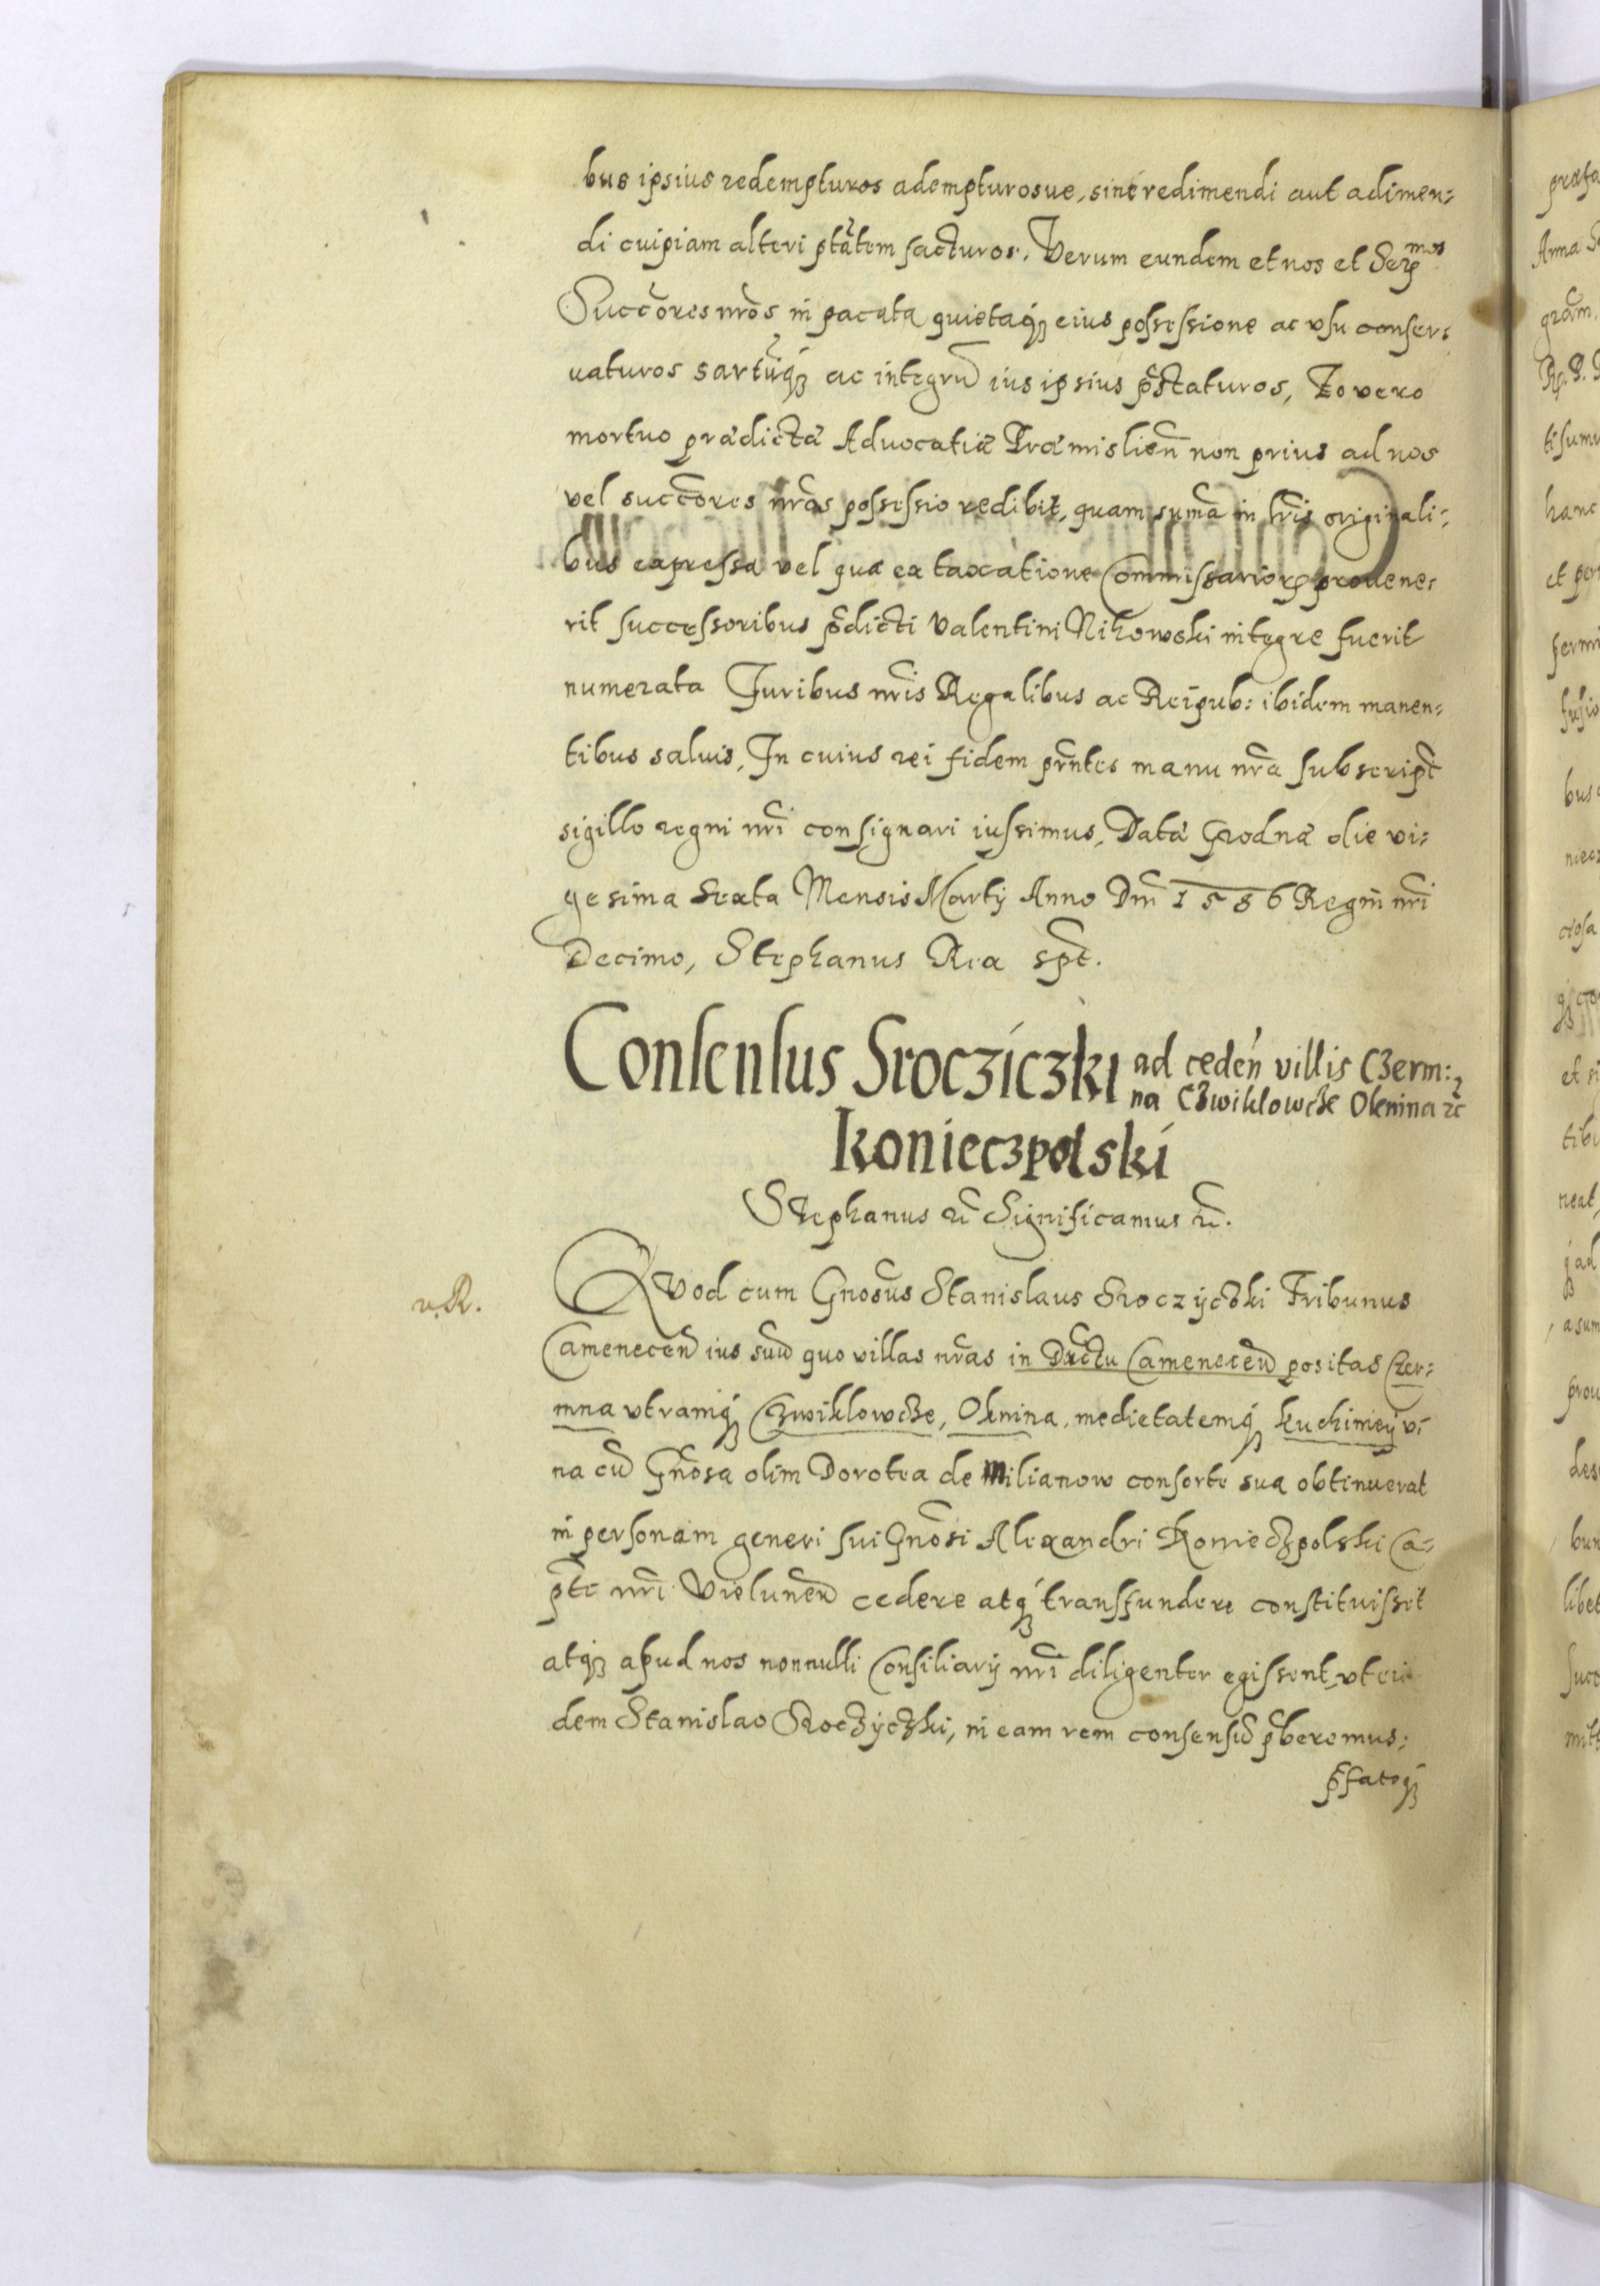 bus ipsius redempturos adempturosue, sine redimendi aut adimen:
di cuipiam alteri ptatem facturos. Verum eundem et nos et Ser:mos
Succores nros in pacata quietaq; eius possessione ac vsu conser:
uaturos sartuq; ac integru ius ipsius pstaturos, Eo vero
mortuo prædictæ Aduocatiæ Præmislien non prius ad nos
vel succores nros possessio redibit, quam suma in lris originali:
bus expressa vel quæ ex taxatione Commissarior prouene:
rit successoribus pdicti Valentini Nihowski integre fuerit
numerata Iuribus nris Regalibus ac Reipub: ibidem manen:
tibus saluis, In cuius rei fidem prntes manu nra subscript
sigillo regni nri consignari iussimus, Datæ Grodnæ die vi:
gesima sexta Mensis Martij Anno Dni 1586 Regni nri
Decimo, Stephanus Rex spt.
Consensus Srocziczki ad ceden villis Czerm:
na Czwiklowcze Oknina etc
Konieczpolski
Stephanus etc Significamus etc.
v. R.
Quod cum Gnosus Stanislaus Sroczyczki Tribunus
Camenecen ius suu quo villas nras in Drctu Camenecen positas Czer:
mna vtramq; Czwiklowcze, Oknina, medietatemq; kuchimey v:
na cu Gnosa olim Dorotea de Milianow consorte sua obtinuerat
in personam generi sui Gnosi Alexandri Konieczpolski Ca:
pte nri Vielunen cedere atq; transfundere constituisset
atq; apud nos nonnulli Consiliarij nri diligenter egissent, vt ei
dem Stanislao Sroczyczki, in eam rem consensu pberemus;
pfatoq;